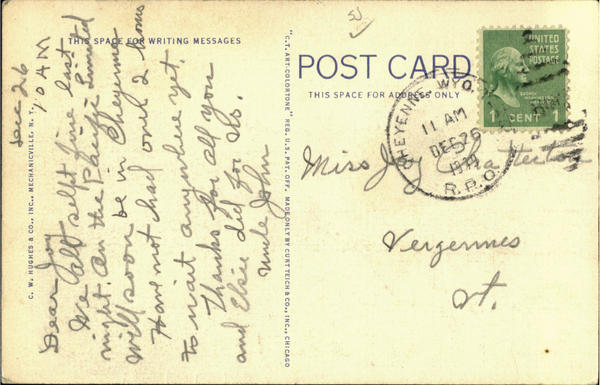 Dec 26
10 AM
Dear Joy
We all slept fine last
night. On the Pacific Limited
will soon be in Cheyenne
Have not had over 2 hours
to wait anywhere yet.
Thanks for all you
and Elsie did for us.
Uncle John
THIS SPACE FOR WRITING MESSAGES
C. W. HUGHES & CO., INC., MECHANICVILLE, N. Y.
"C.T. ART-COLORTONE" REG. U.S. PAT. OFF. MADE ONLY BY CURT TEICH & CO., INC., CHICAGO
POST CARD
THIS SPACE FOR ADDRESS ONLY
CHEYENNE, WYO.
11 AM
DEC 26
R.P.O.
UNITED
STATES
POSTAGE
1 CENT 1
Miss Joy Chatterton
Vergennes
Vt.